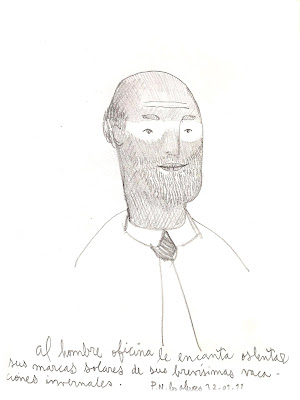 al hombre oficina le encanta ostentar
sus marcas solares de sus brevísimas vaca-
ciones invernales. P.N.